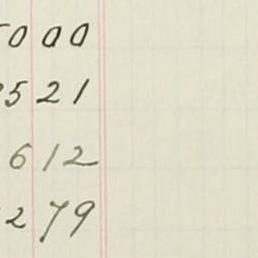 50 00
35 21
6 12
2 79